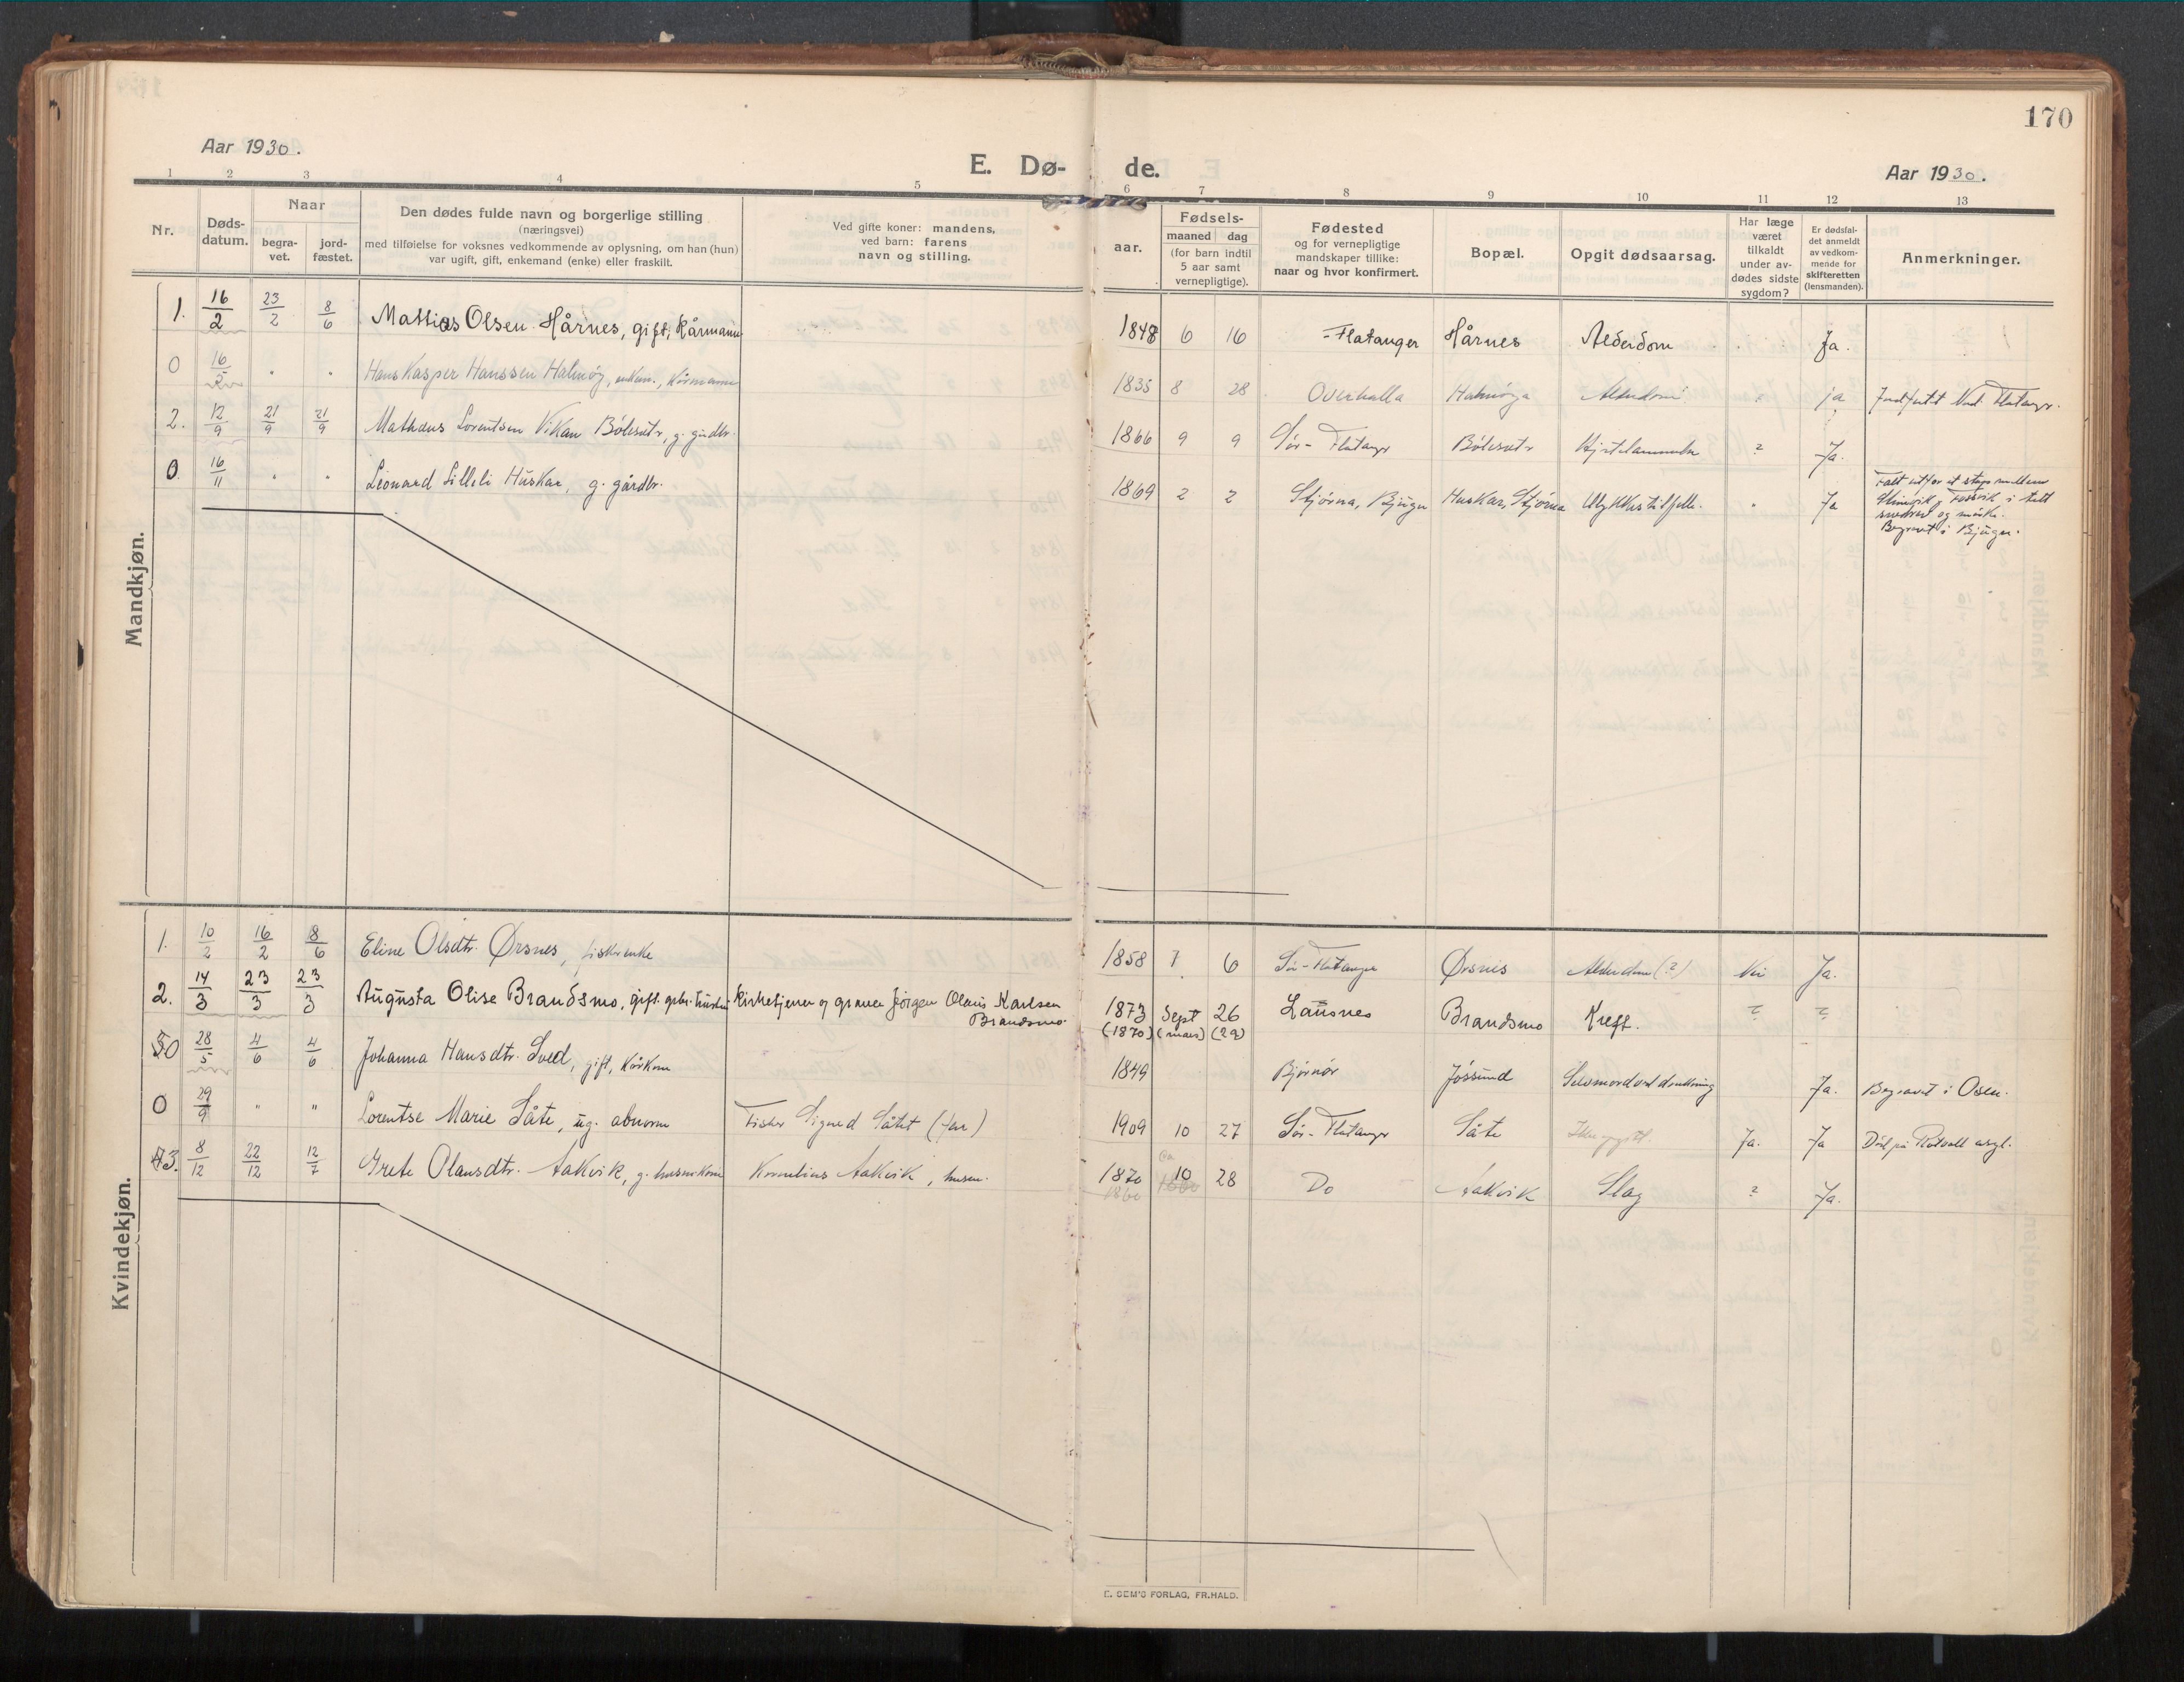 170
Aar 1930.
E. Dø- de.
Aar 1930.
1 2 3 4 5 6 7 8 9 10 11 12 13
Nr.
Døds-
datum.
Naar
begra-
vet.
jord-
fæstet.
Den dødes fulde navn og borgerlige stilling
(næringsvei)
med tilføielse for voksnes vedkommende av oplysning, om han (hun)
var ugift, gift, enkemand (enke) eller fraskilt.
Ved gifte koner: mandens,
ved barn: farens
navn og stilling.
Fødsels-
aar.
maaned dag
(for barn indtil
5 aar samt
vernepligtige).
Fødested
og for vernepligtige
mandskaper tillike:
naar og hvor konfirmert.
Bopæl.
Opgit dødsaarsag.
Har læge
været
tilkaldt
under av-
dødes sidste
sygdom?
Er dødsfal-
det anmeldt
av vedkom-
mende for
skifteretten
(lensmanden).
Anmerkninger.
Mandkjøn.
1. 16/2 23/2 8/6 Mattias Olsen Hårnes, gift, Kårmann 1848 6 16 Flatanger Hårnes Alderdom Ja.
0 16/5 " " Hans Kasper Hanssen Halmøy, enkem., Kårmann 1835 8 28 Overhalla Halmøya Alderdom " ja
2. 12/9 21/9 21/9 Mathæus Lorentsen Vikan Bölesæter, g. gårdbr. 1866 9 9 Sør-Flatangr Bölesetr ? Ja.
0 16/11 " " Leonard Lilleli Huskar, g. gårdbr. 1869 2 2 Stjørna, Bjugn Huskar, Stjørna Ulykkestilfelle. " Ja
Falt utfor et stup mellem
Fossvik i tett
snedrev og mørke.
Begravet i Bjugn.
Kvindekjøn.
1. 10/2 16/2 8/6 Eline Olsdtr. Ørsnes, fiskerenke 1858 7 6 Sør-Flatanger Ørsnes Alderdom (?) Nei Ja.
2. 14/3 23/3 23/3 Augusta Olise Brandsmo, gift. gbr. hustru Kirketjener og graver Jörgen Olaus Karlsen
Brandsmo 1873 Sept 26 Lausnes Brandsmo Kreft. ? ?
(1870) (mars) (29)
0 28/5 4/6 4/6 Johanna Hansdtr. Sved, gift, Kårkone 1849 Bjørnør Jøssund Selvmord ved drukning Ja. Begravet i Osen.
0 29/9 " " Lorentse Marie Såte, ug. abnorm Fisker Sigurd Såter (far) 1909 10 27 Sør-Flatangr Såte Ikke opgitt. Ja. Ja Död på Rotvoll asyl.
3. 8/12 22/12 12/7 Grete Olausdtr. Aakvik, g. husm.kone Kornelius Aakvik, husm. 1870 10 28 Do Aakvik Slag ? Ja.
1860
E. SEM'S FORLAG, FR.HALD.